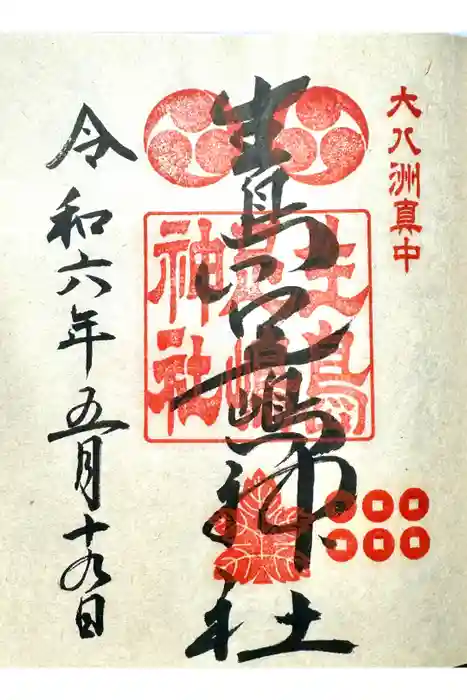 大八洲真中
生島足嶋神社
生島
足嶋
神社
令和六年五月十九日